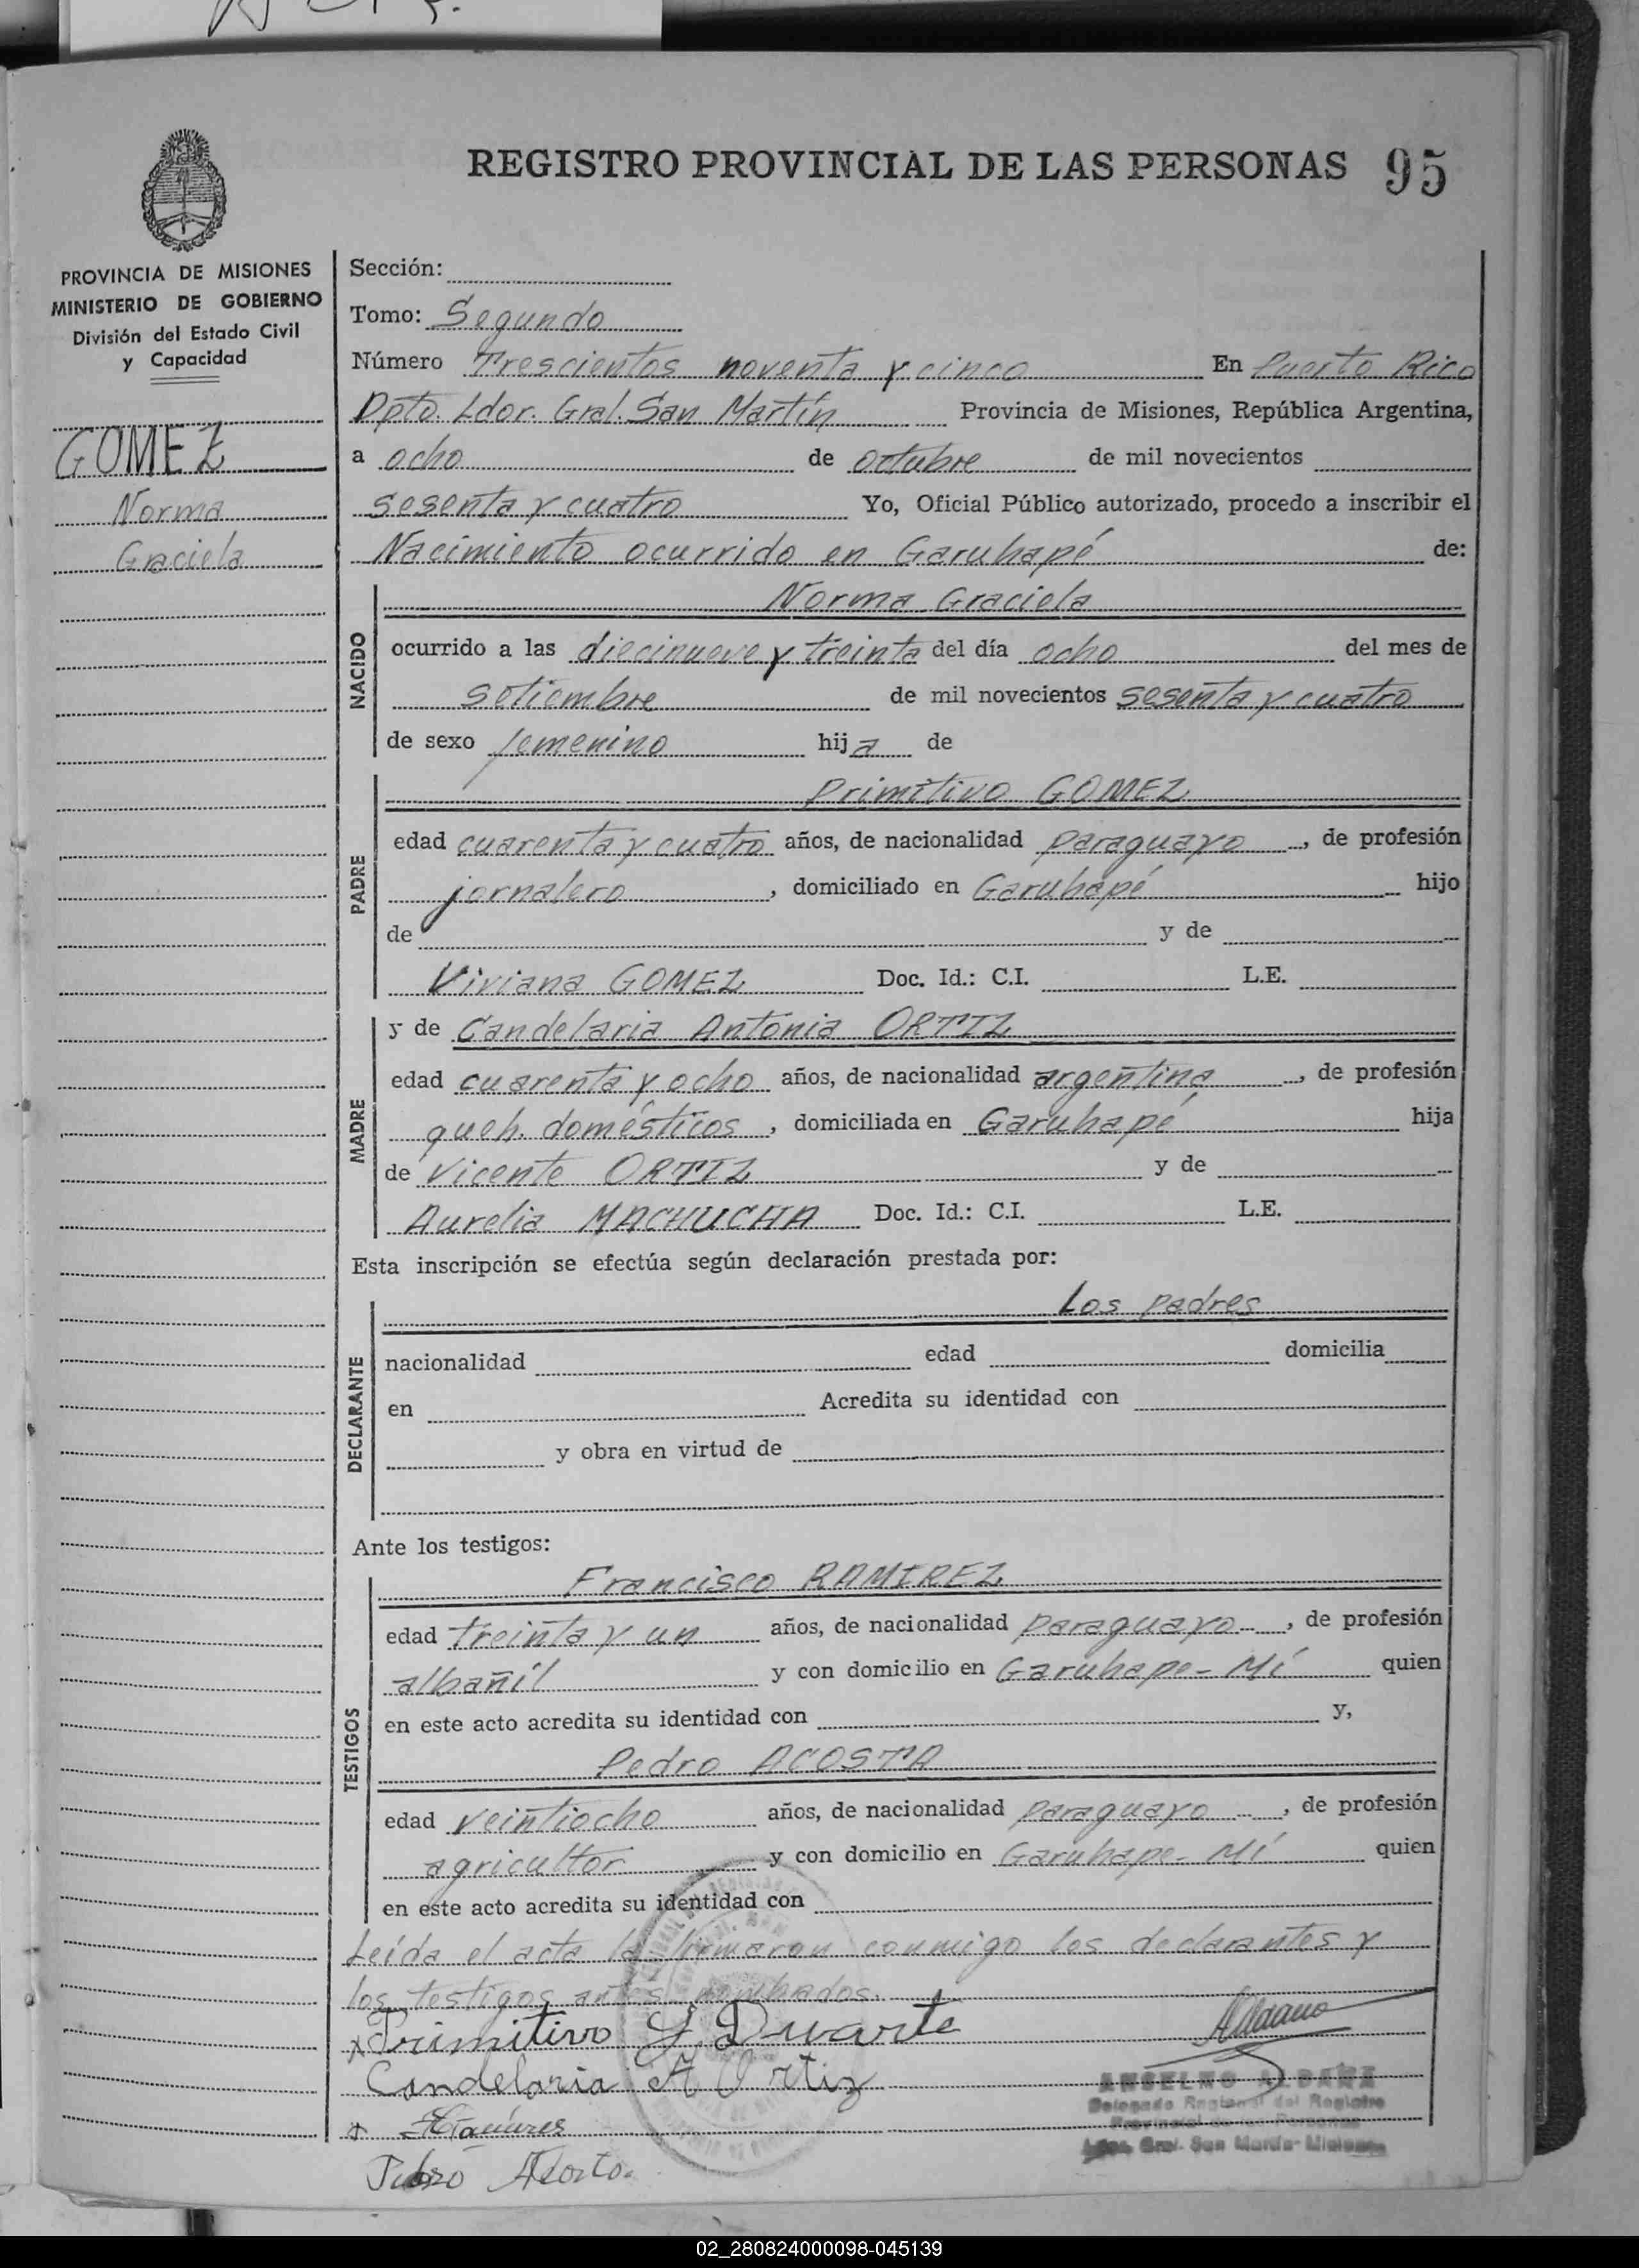 REGISTRO PROVINCIAL DE LAS PERSONAS 95
PROVINCIA DE MISIONES
MINISTERIO DE GOBIERNO
División del Estado Civil
y Capacidad
GOMEZ
Norma
Graciela
Sección:
Tomo: Segundo
Número Trescientos noventa y cinco En Puerto Rico
Dpto. Ldor. Gral. San Martín Provincia de Misiones, República Argentina,
a ocho de octubre de mil novecientos
sesenta y cuatro Yo, Oficial Público autorizado, procedo a inscribir el
Nacimiento ocurrido en Garuhapé de:
NACIDO
Norma Graciela
ocurrido a las diecinueve y treinta del día ocho del mes de
setiembre de mil novecientos sesenta y cuatro
de sexo femenino hija de
PADRE
Primitivo GOMEZ
edad cuarenta y cuatro años, de nacionalidad paraguayo, de profesión
jornalero, domiciliado en Garuhapé hijo
de y de
Viviana GOMEZ Doc. Id.: C.I. L.E.
MADRE
y de Candelaria Antonia ORTIZ
edad cuarenta y ocho años, de nacionalidad argentina, de profesión
queh. domésticos, domiciliada en Garuhapé hija
de Vicente ORTIZ y de
Aurelia MACHUCHA Doc. Id.: C.I. L.E.
Esta inscripción se efectúa según declaración prestada por:
DECLARANTE
Los padres
nacionalidad edad domicilia
en Acredita su identidad con
y obra en virtud de
Ante los testigos:
TESTIGOS
Francisco RAMIREZ
edad treinta y un años, de nacionalidad paraguayo, de profesión
albañil y con domicilio en Garuhape-Mí quien
en este acto acredita su identidad con y,
Pedro ACOSTA
edad veintiocho años, de nacionalidad paraguayo, de profesión
agricultor y con domicilio en Garuhape-Mí quien
en este acto acredita su identidad con
Leída el acta la firmaron conmigo los declarantes y
los testigos antes nombrados.
Primitivo G. Duarte
Candelaria A Ortiz
ANSELMO ALDANA
Delegado Regional del Registro
Provincial de las Personas
Ldor. Gral. San Martín-Misiones
Pedro Acosta
02_280824000098-045139